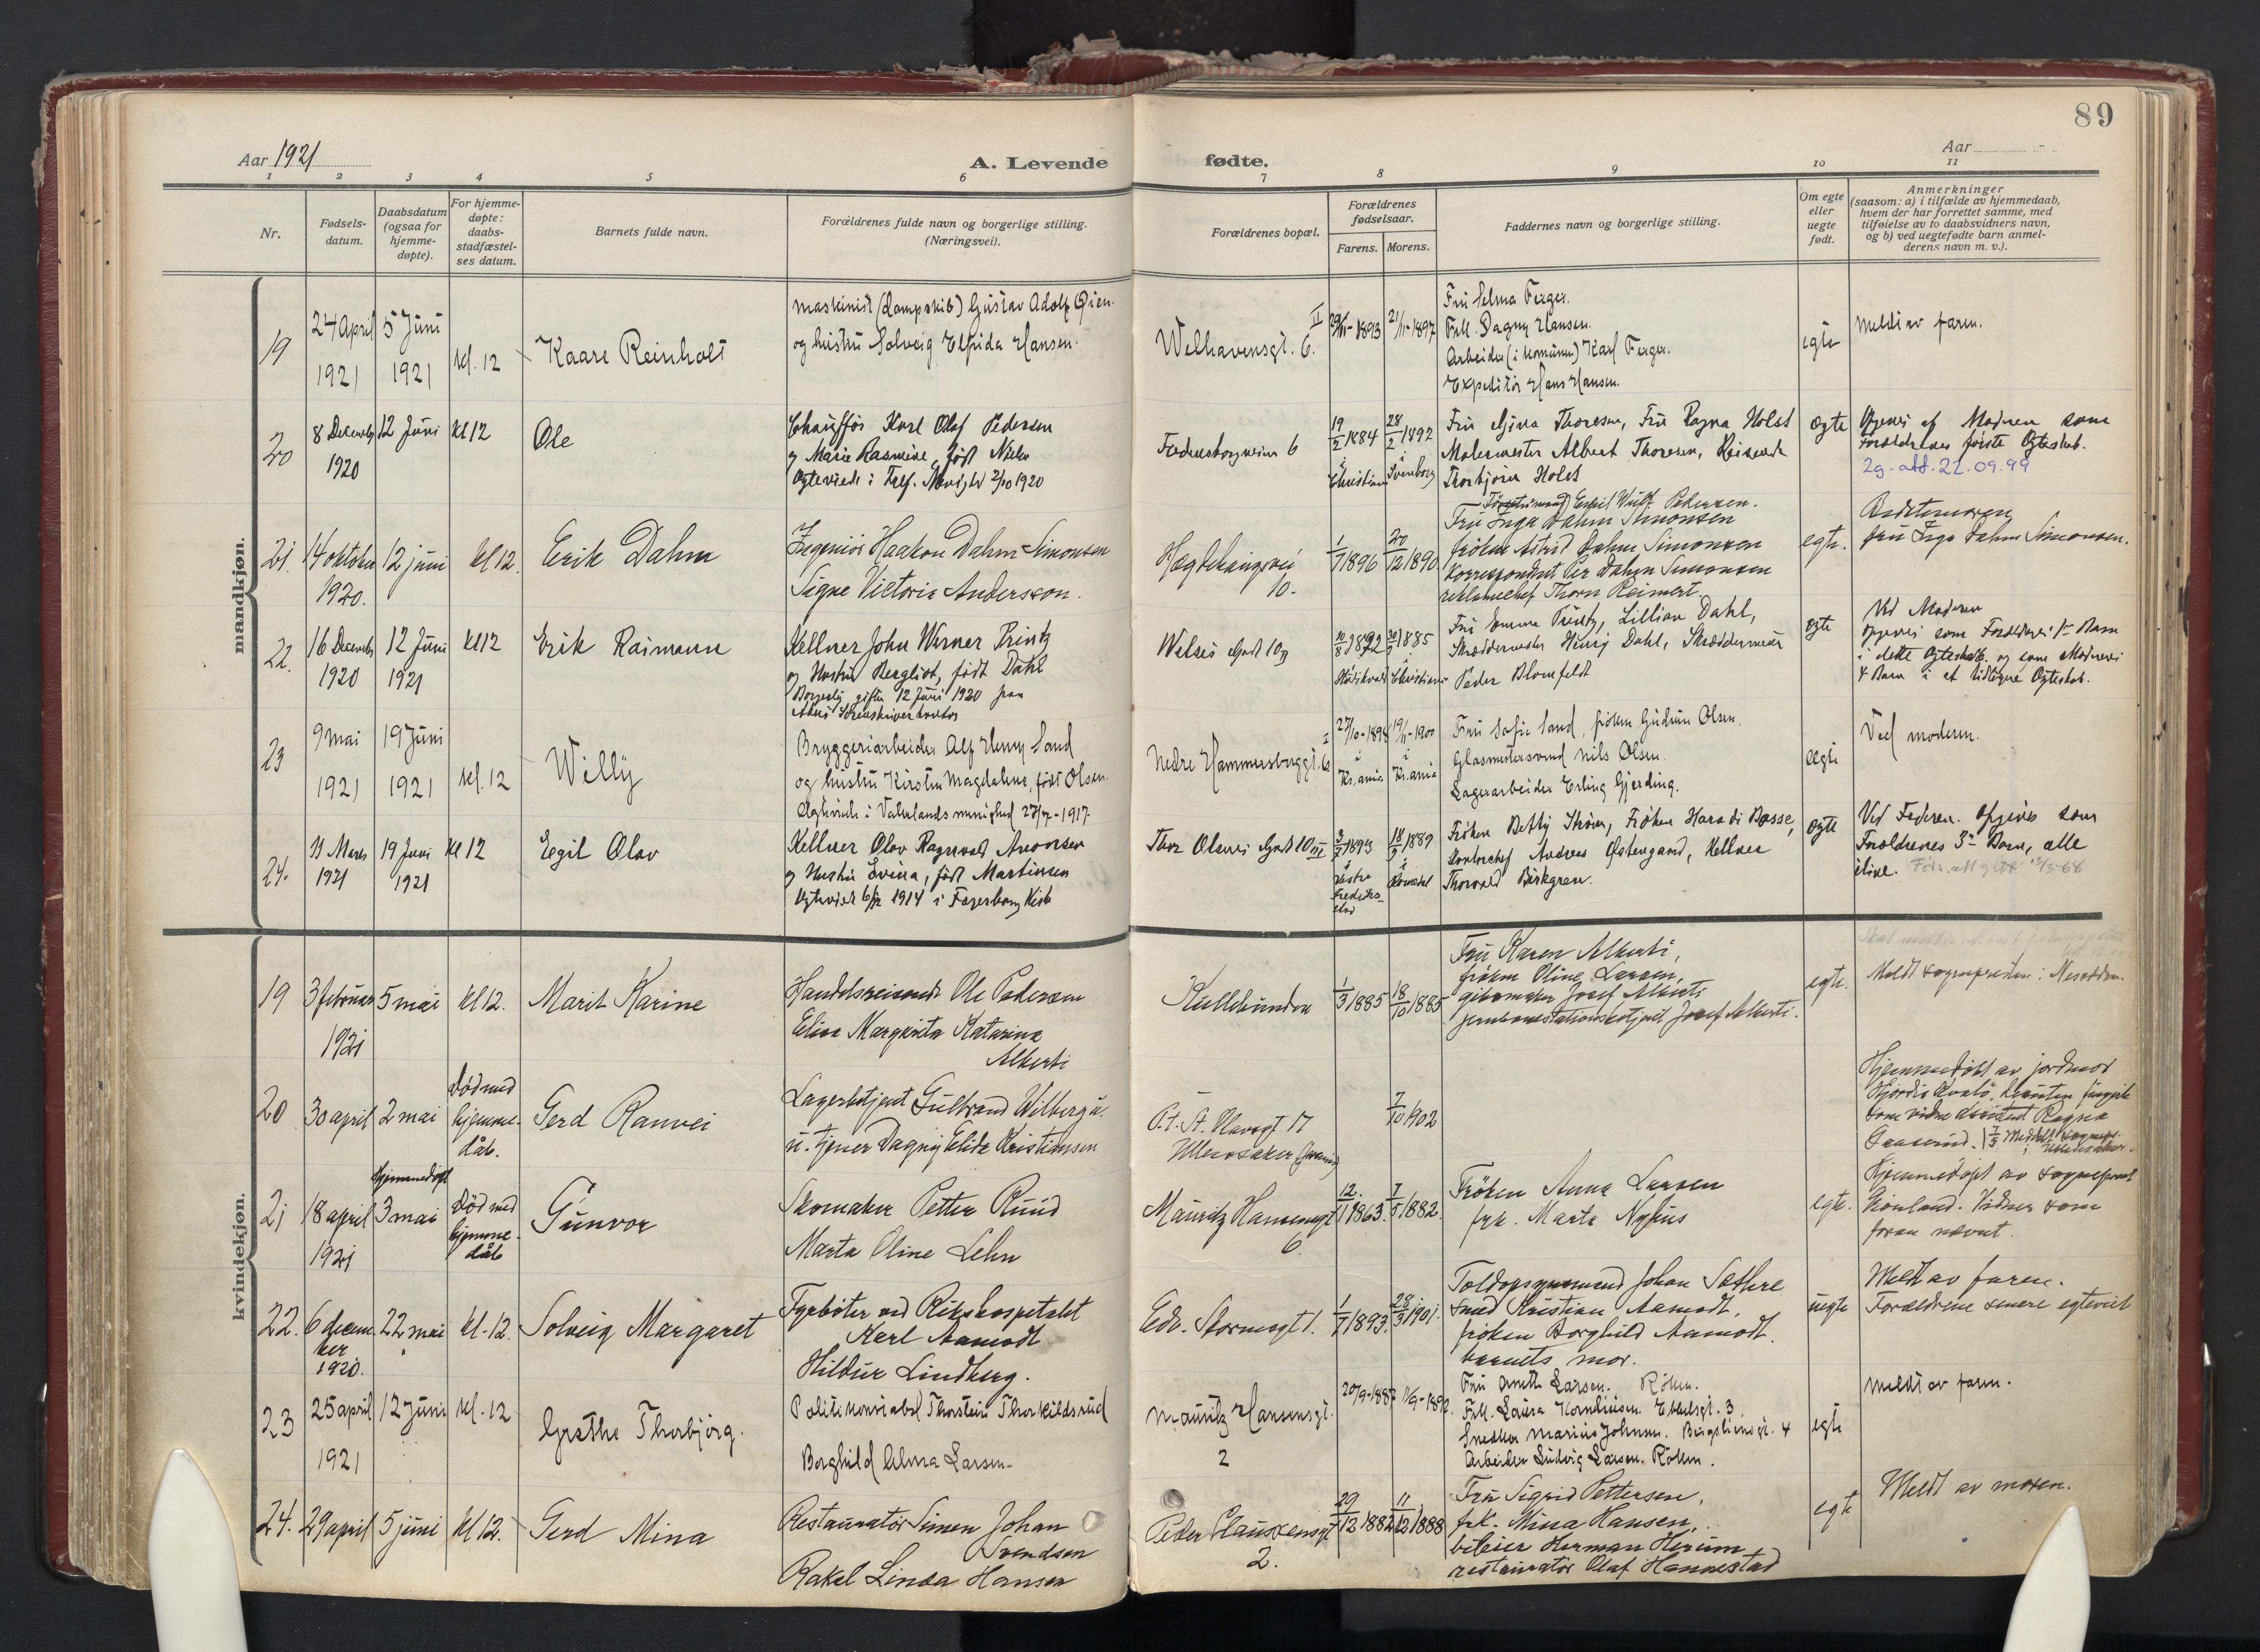 89
Aar 1921
A. Levende fødte.
Aar
1 2 3 4 5 6 7 8 9 10 11
Nr.
Fødsels-
datum.
Daabsdatum
(ogsaa for
hjemme-
døpte).
For hjemme-
døpte:
daabs-
stadfæstel-
ses datum.
Barnets fulde navn.
Forældrenes fulde navn og borgerlige stilling.
(Næringsvei).
Forældrenes bopæl.
Forældrenes
fødselsaar.
Farens. Morens.
Faddernes navn og borgerlige stilling.
Om egte
eller
uegte
født.
Anmerkninger
(saasom: a) i tilfælde av hjemmedaab,
hvem der har forrettet samme, med
tilføielse av to daabsvidners navn,
og b) ved uegtefødte barn anmel-
derens navn m. v.).
mandkjøn.
19
24 April
1921
5 Juni
1921
kl. 12
Kaare Reinholt
Maskinist (Dampskib) Gustav Adolf Øien
og hustru Solveig Elfrida Hansen.
Welhavensgt. 6. II
1893
21/11-1897
Fru Selma Ferger.
Frk. Dagny Hansen.
Arbeider (i komunen) Karl Ferger.
Expeditør Hans Hansen.
egte
Meldt av faren.
20
8 Decembr
1920
12 Juni
kl 12
Ole
Chauffør Karl Olaf Pedersen
og Marie Rasmine, født
Ægteviede i 2/10 1920
6
19/2 1884
i Christiania
28/2 1892
i Svenborg
Fru Gina Thoresen, Fru Ragna Holst
Malermester Albert Thoresen, Reisende
Thorbjørn Holst
Pedersen.
ægte
Opgives af Moderen som
Forældrenes første Ægteskab.
2g. att. 21.09.99
21.
14 oktober
1920.
12 juni
kl 12.
Erik Dahm
Ingeniør Haakon Dahm-Simonsen
Signe Victoria Andersson.
Hægdehaugsvei
10.
1/7 1896
20/12 1890
Fru Inga Dahm Simonsen
frøken Astrid Dahm Simonsen
Korrespondent Per Dahm Simonsen
reklamechef Thorn Reimert.
egte.
Bedstemoren
fru Inga Dahm Simonsen.
22.
16 Decembr
1920
12 Juni
1921
kl 12
Erik Raimann
Kellner John Werner Printz
og Hustru Bergliot, født Dahl
Borgerlig gifte 12 Juni 1920 paa
Akers Sorenskriverkontor
1872
1885
Christiania
Printz, Lillian Dahl,
Skræddermester Dahl, Skræddersvend
Peder Blomfeldt
ægte
Ved Moderen
opgives som Forældrenes 1ste Barn
i dette Ægteskab. og som Moderens
4 Barn i et tidligere Ægteskab.
23
9 mai
1921
19 Juni
1921
kl. 12
Willy
Bryggeriarbeider Alf Henry Sand
og hustru Kirsten Magdalene, født Olsen.
Ægteviede i Vaterlands menighed 1917.
Nedre Hammersborggt. 6
i
Kr.ania
19/11-1900
i
Kr.ania
Fru Sofie Sand, frøken Gudrun Olsen.
Glasmestersvend Nils Olsen.
Lagerarbeider Erling Gjerding.
ægte
Ved moderen.
24.
Marts
1921
19 Juni
1921
kl 12
Eegil Olav
Kellner Olav Ragnvald Aronsen
og Hustru Lovisa, født Martinsen
Ægteviede 1914 i Fagerborg Kirke
Thor Olsens Gade 10 III
1893
i
Fredriks-
stad
18/9 1889
i
Frøken Betty Strøm, Frøken Bosse,
Kontorchef Andreas Østergaard, Kellner
Thorvald Birkgren.
ægte
Ved Faderen. Opgives som
Forældrenes 3die Barn, alle
ilive.
kvindekjøn.
19
3 februar
1921
5 mai
kl 12.
Marit Karine
Handelsreisende Ole Pedersen
Elise Margarita Katarina
Alberti
Kullebunden
1/3 1885
18/10 1885
Fru Karen Alberti,
frøken Oline Larsen,
Josef Alberti
jernbanestationsbetjent Josef Alberti.
egte.
Meldt sognepresten i Nesodden.
20
30 april
2 mai
Død med
hjemme-
dåb.
Gerd Ranvei
Lagerbetjent Gulbrand Wilberg u.
u. tjener Dagny Elida Kristiansen
P.t. St. Olavsgt 17
Ullensaker
7/10 1902
Hjemmedøbt av jordmor
Hjørdis
som vidne Ragna
21
18 april
1921
Hjemmedøpt
3 mai
Død med
hjemme-
dåb
Gunvor
Skomaker Petter Ruud
Marta Oline Lehn
Mauritz Hansensgt
6.
12./1 1863.
7/5 1882.
Frøken Anna Larsen
frk. Marta Nyhus
egte.
Hjemmedøpt av sogneprest
Vidner som
foran nævnt.
22.
6 decem-
ber
1920.
22 mai
kl. 12.
Solveig Margaret
Fyrbøter ved Rikshospitalet
Karl Aamodt
Hildur Lindberg.
Edv. Stormsgt 1.
1/7 1893.
28/3 1901.
Toldopsynsmand Johan Sæthre
smed Kristian Aamodt.
frøken Borghild Aamodt.
barnets mor.
uegte
Meldt av faren.
Forældrene senere egteviet
23
25 april
1921
12 Juni
kl. 12
Grethe Thorbjørg.
Politikonstabel Thorstein Thorkildsrud
Borghild Alma Larsen
Mauritz Hansensgt.
2
20/9-1887
Fru Anette Larsen. Røken.
Frk. Laura Korneliusen. 3
Snedker Marius Johnsen. Bergsliensgt. 4
Arbeider Ludvig Larsen. Røken.
egte
Meldt av faren.
24.
29 april
5 juni
kl 12.
Gerd Mina
Restauratør Simen Johan
Svendsen
Rakel Linda Hansen
Peder Claussensgt
2.
29/12 1882
11/12 1888
Fru Sigrid Pettersen,
frk. Mina Hansen,
bileier Herman Herum
restauratør Olaf Hannestad
egte
Meldt av moren.